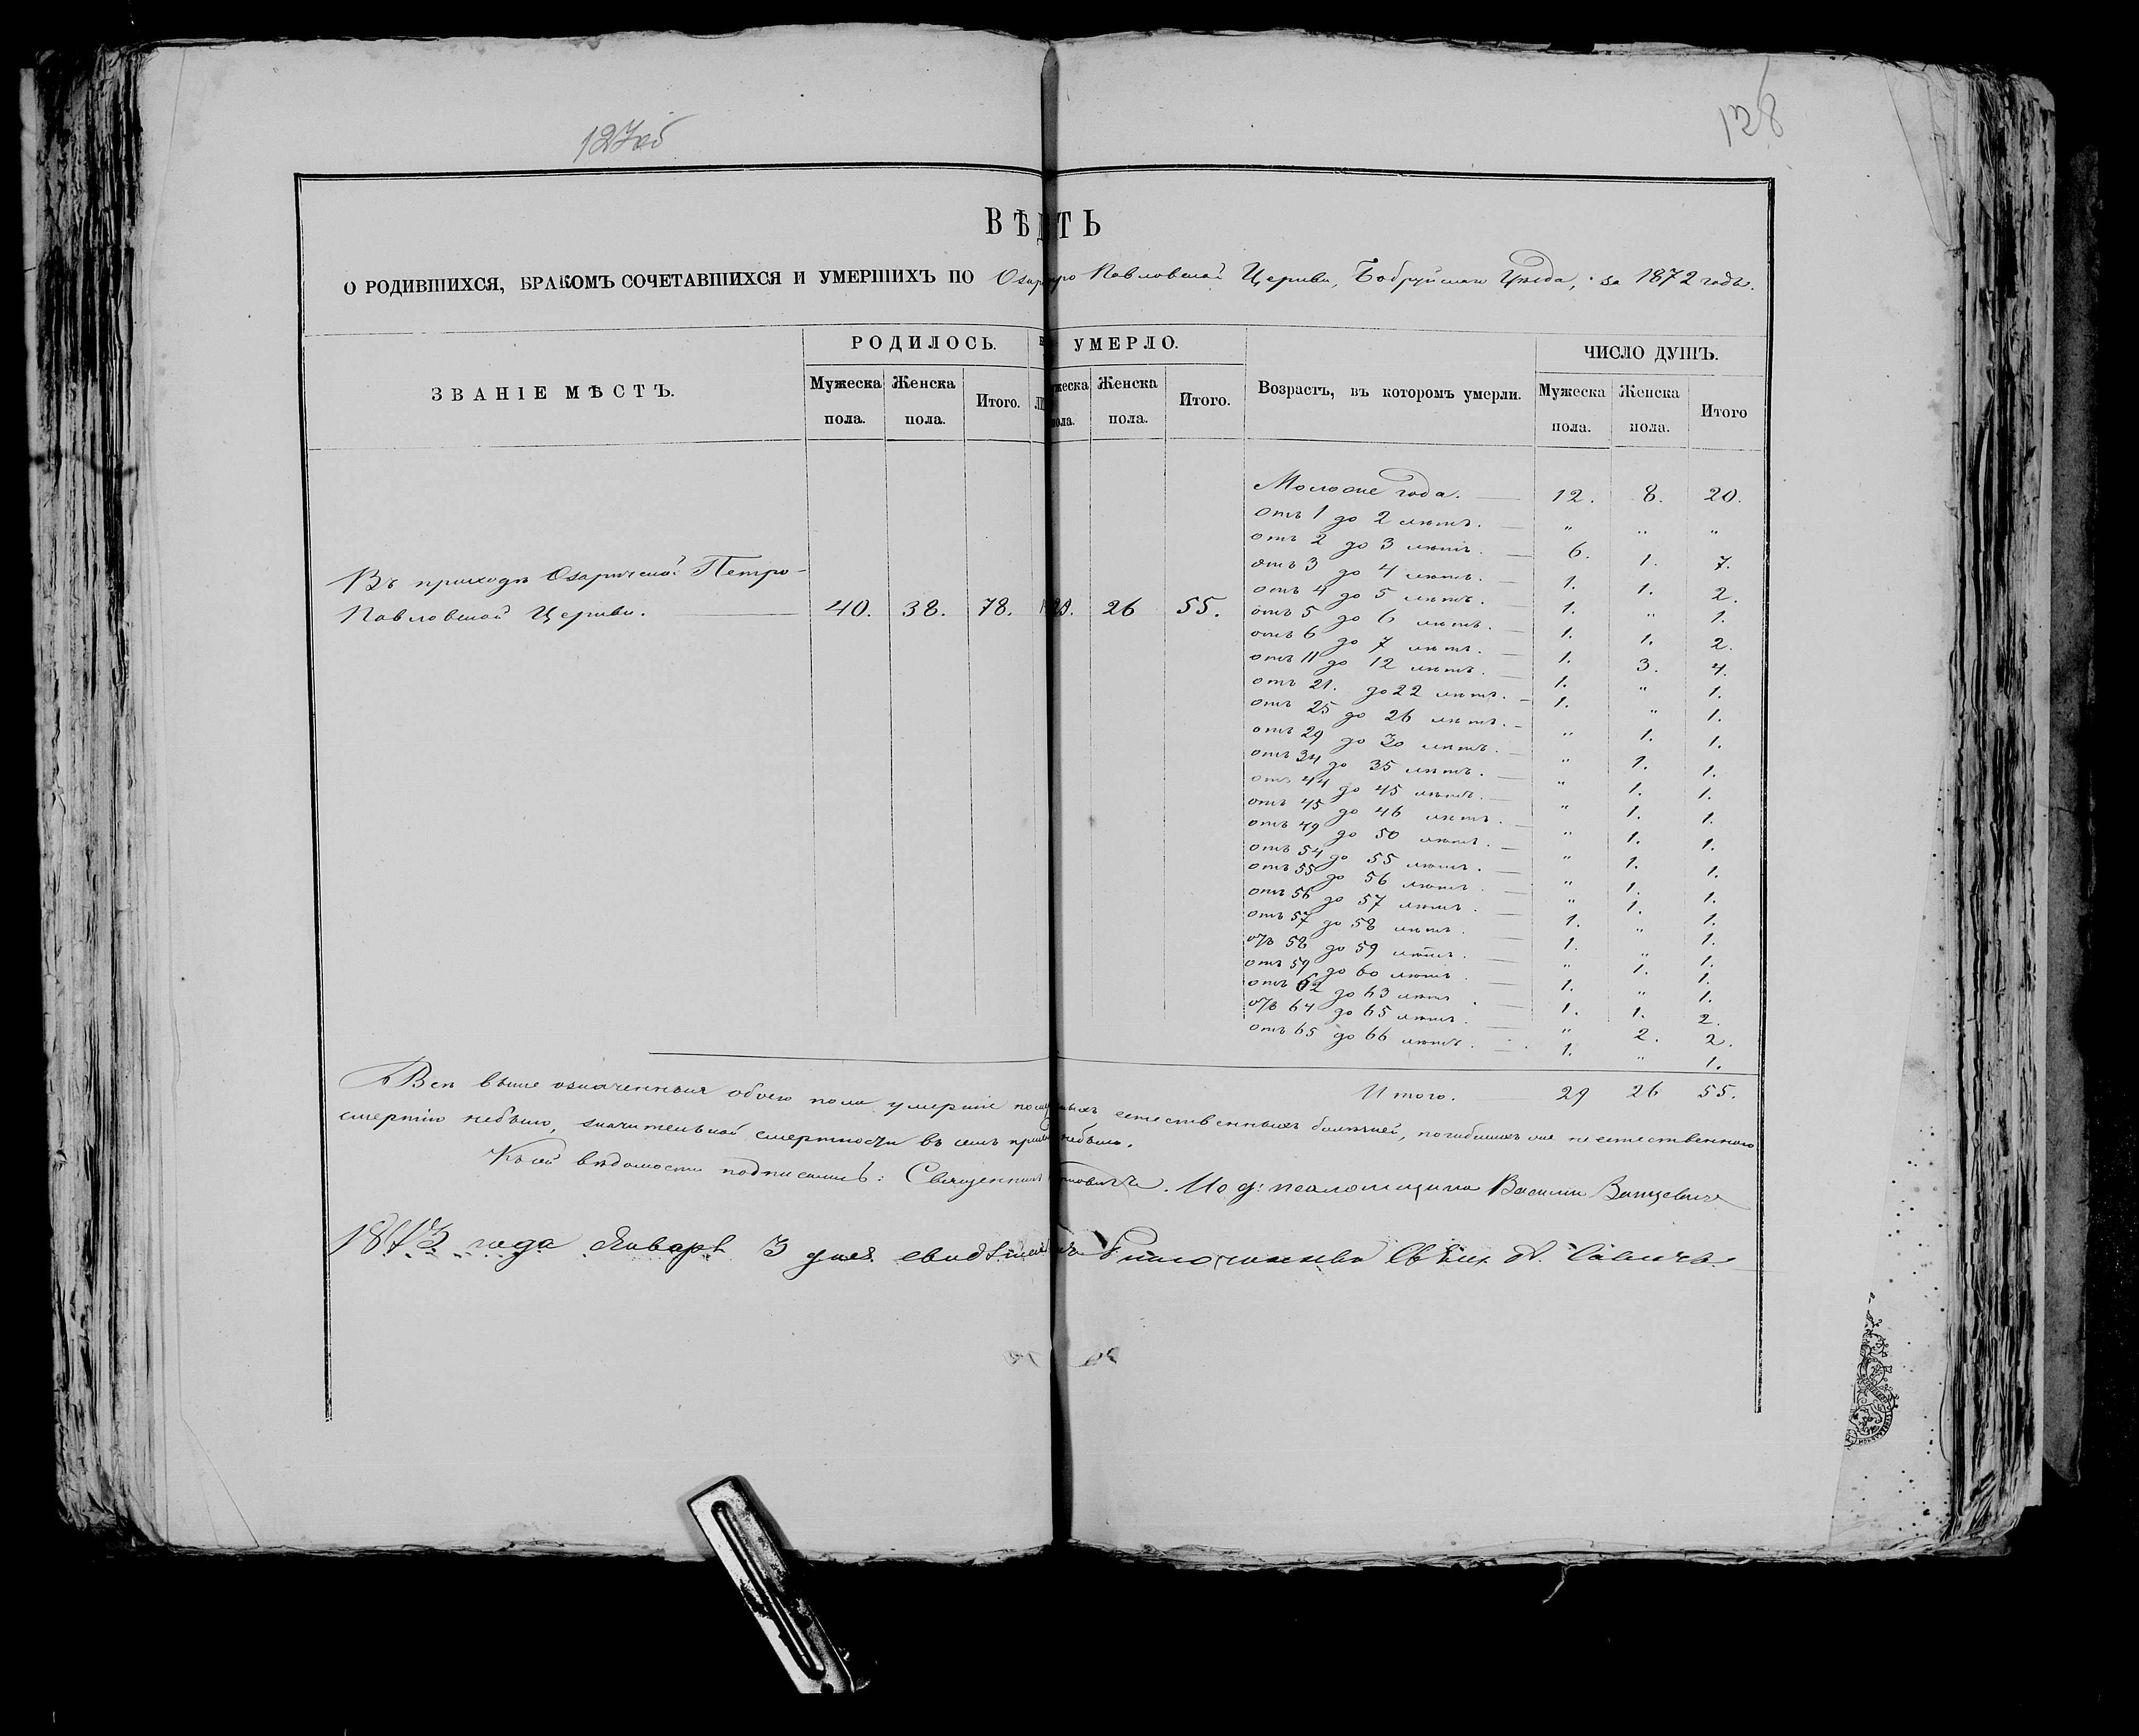 127об
128
ВѢДТЬ
О РОДИВШИХСЯ, БРАКОМЪ СОЧЕТАВШИХСЯ И УМЕРШИХЪ ПО Озар ро Павловской Церкви, Бобруйскаго Уѣзда, за 1872 годъ.
ЗВАНІЕ МѢСТЪ. РОДИЛОСЬ. УМЕРЛО. Возрастъ, въ которомъ умерли. ЧИСЛО ДУШЪ.
Мужеска пола. Женска пола. Итого. жеска пола. Женска пола. Итого. Мужеска пола. Женска пола. Итого
Въ приходѣ Озаричской Петро-
Павловской Церкви. 40. 38. 78. 29. 26 55.
Моложе года. 12. 8. 20.
отъ 1 до 2 лѣтъ. " " "
отъ 2 до 3 лѣтъ. 6. 1. 7.
отъ 3 до 4 лѣтъ. 1. 1. 2.
отъ 4 до 5 лѣтъ. 1. " 1.
отъ 5 до 6 лѣтъ. 1. 1. 2.
отъ 6 до 7 лѣтъ. 1. 3. 4.
отъ 11 до 12 лѣтъ. 1. " 1.
отъ 21. до 22 лѣтъ. 1. " 1.
отъ 25 до 26 лѣтъ. " 1. 1.
отъ 29 до 30 лѣтъ. " 1. 1.
отъ 34 до 35 лѣтъ. " 1. 1.
отъ 44 до 45 лѣтъ. " 1. 1.
отъ 45 до 46 лѣтъ. " 1. 1.
отъ 49 до 50 лѣтъ. " 1. 1.
отъ 54 до 55 лѣтъ. " 1. 1.
отъ 55 до 56 лѣтъ. " 1. 1.
отъ 56 до 57 лѣтъ. 1. " 1.
отъ 57 до 58 лѣтъ. 1. " 1.
отъ 58 до 59 лѣтъ. " 1. 1.
отъ 59 до 60 лѣтъ. 1. " 1.
отъ 62 до 63 лѣтъ. 1. 1. 2.
отъ 64 до 65 лѣтъ. " 2. 2.
отъ 65 до 66 лѣтъ. 1. " 1.
Итого. 29 26 55.
Всѣ выше означенныя обоего пола умершіе естественныхъ болѣзней, погибшихъ не естественною
смертію небыло, значительной смертности въ семъ небыло.
Къ сей вѣдомости подписались: Священникъ И. д: псаломщика Василій
1873 года Января 3 дня А. Савичъ